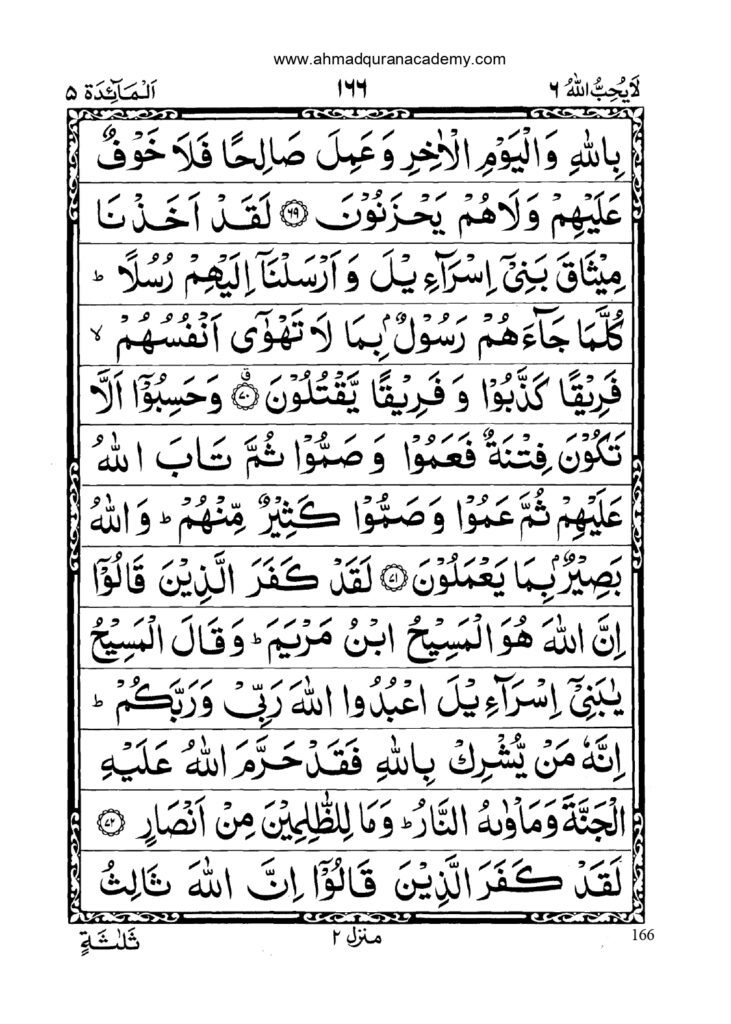 www.ahmadquranacademy.com
لَا يُحِبُّ اللّٰهُ ۶ ۱۶۶ اَلْمَآئِدَة ۵
بِاللّٰهِ وَالْيَوْمِ الْاٰخِرِ وَعَمِلَ صَالِحًا فَلَا خَوْفٌ
عَلَيْهِمْ وَلَا هُمْ يَحْزَنُوْنَ ۶۹ لَقَدْ اَخَذْنَا
مِيْثَاقَ بَنِيْۤ اِسْرَآءِيْلَ وَاَرْسَلْنَاۤ اِلَيْهِمْ رُسُلًا ؕ
كُلَّمَا جَآءَهُمْ رَسُوْلٌۢ بِمَا لَا تَهْوٰۤى اَنْفُسُهُمْ ۙ
فَرِيْقًا كَذَّبُوْا وَفَرِيْقًا يَّقْتُلُوْنَ ۷۰ ۗ وَحَسِبُوْۤا اَلَّا
تَكُوْنَ فِتْنَةٌ فَعَمُوْا وَصَمُّوْا ثُمَّ تَابَ اللّٰهُ
عَلَيْهِمْ ثُمَّ عَمُوْا وَصَمُّوْا كَثِيْرٌ مِّنْهُمْ ؕ وَاللّٰهُ
بَصِيْرٌۢ بِمَا يَعْمَلُوْنَ ۷۱ لَقَدْ كَفَرَ الَّذِيْنَ قَالُوْۤا
اِنَّ اللّٰهَ هُوَ الْمَسِيْحُ ابْنُ مَرْيَمَ ؕ وَقَالَ الْمَسِيْحُ
يٰبَنِيْۤ اِسْرَآءِيْلَ اعْبُدُوا اللّٰهَ رَبِّيْ وَرَبَّكُمْ ؕ
اِنَّهٗ مَنْ يُّشْرِكْ بِاللّٰهِ فَقَدْ حَرَّمَ اللّٰهُ عَلَيْهِ
الْجَنَّةَ وَمَاْوٰىهُ النَّارُ ؕ وَمَا لِلظّٰلِمِيْنَ مِنْ اَنْصَارٍ ۷۲
لَقَدْ كَفَرَ الَّذِيْنَ قَالُوْۤا اِنَّ اللّٰهَ ثَالِثُ
166 منزل ۲ ثَلٰثَةٍ